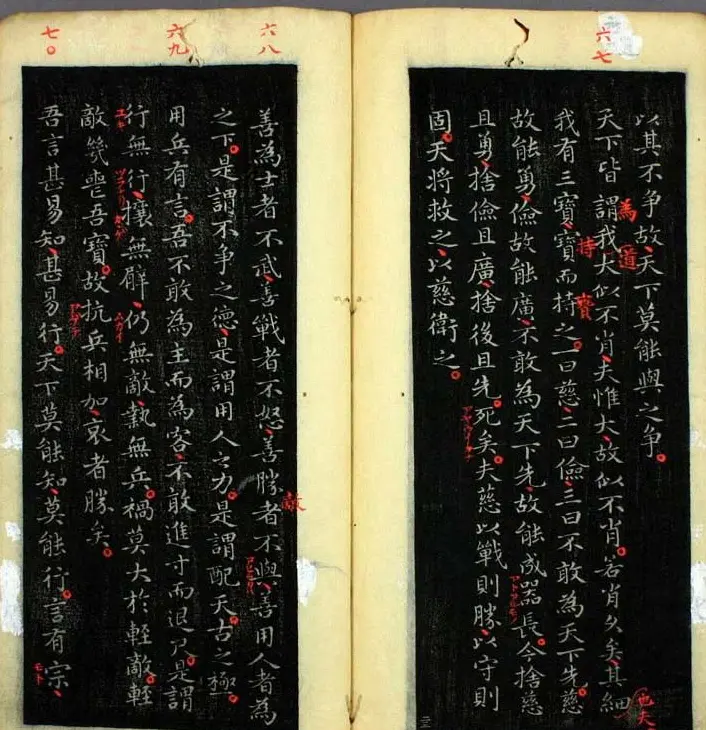 六七
以其不争故、天下莫能與之争。
天下皆謂我大似不肖、夫惟大、故似不肖。若肖久矣、其細
為
道
也夫
我有三寶、寶而持之。一曰慈、二曰儉、三曰不敢為天下先。慈
持
寶
故能勇、儉故能廣、不敢為天下先、故能成器長。今捨慈
且勇、捨儉且廣、捨後且先、死矣。夫慈以戰則勝、以守則
固。天將救之、以慈衛之。
六八
善為士者不武、善戰者不怒、善勝者不與、善用人者為
敵
之下。是謂不争之德、是謂用人之力。是謂配天。古之極。
六九
用兵有言。吾不敢為主而為客、不敢進寸而退尺。是謂
行無行、攘無臂、仍無敵、執無兵。禍莫大於軽敵。軽
敵幾喪吾寶。故抗兵相加、哀者勝矣。
七〇
吾言甚易知、甚易行。天下莫能知、莫能行。言有宗、
モト